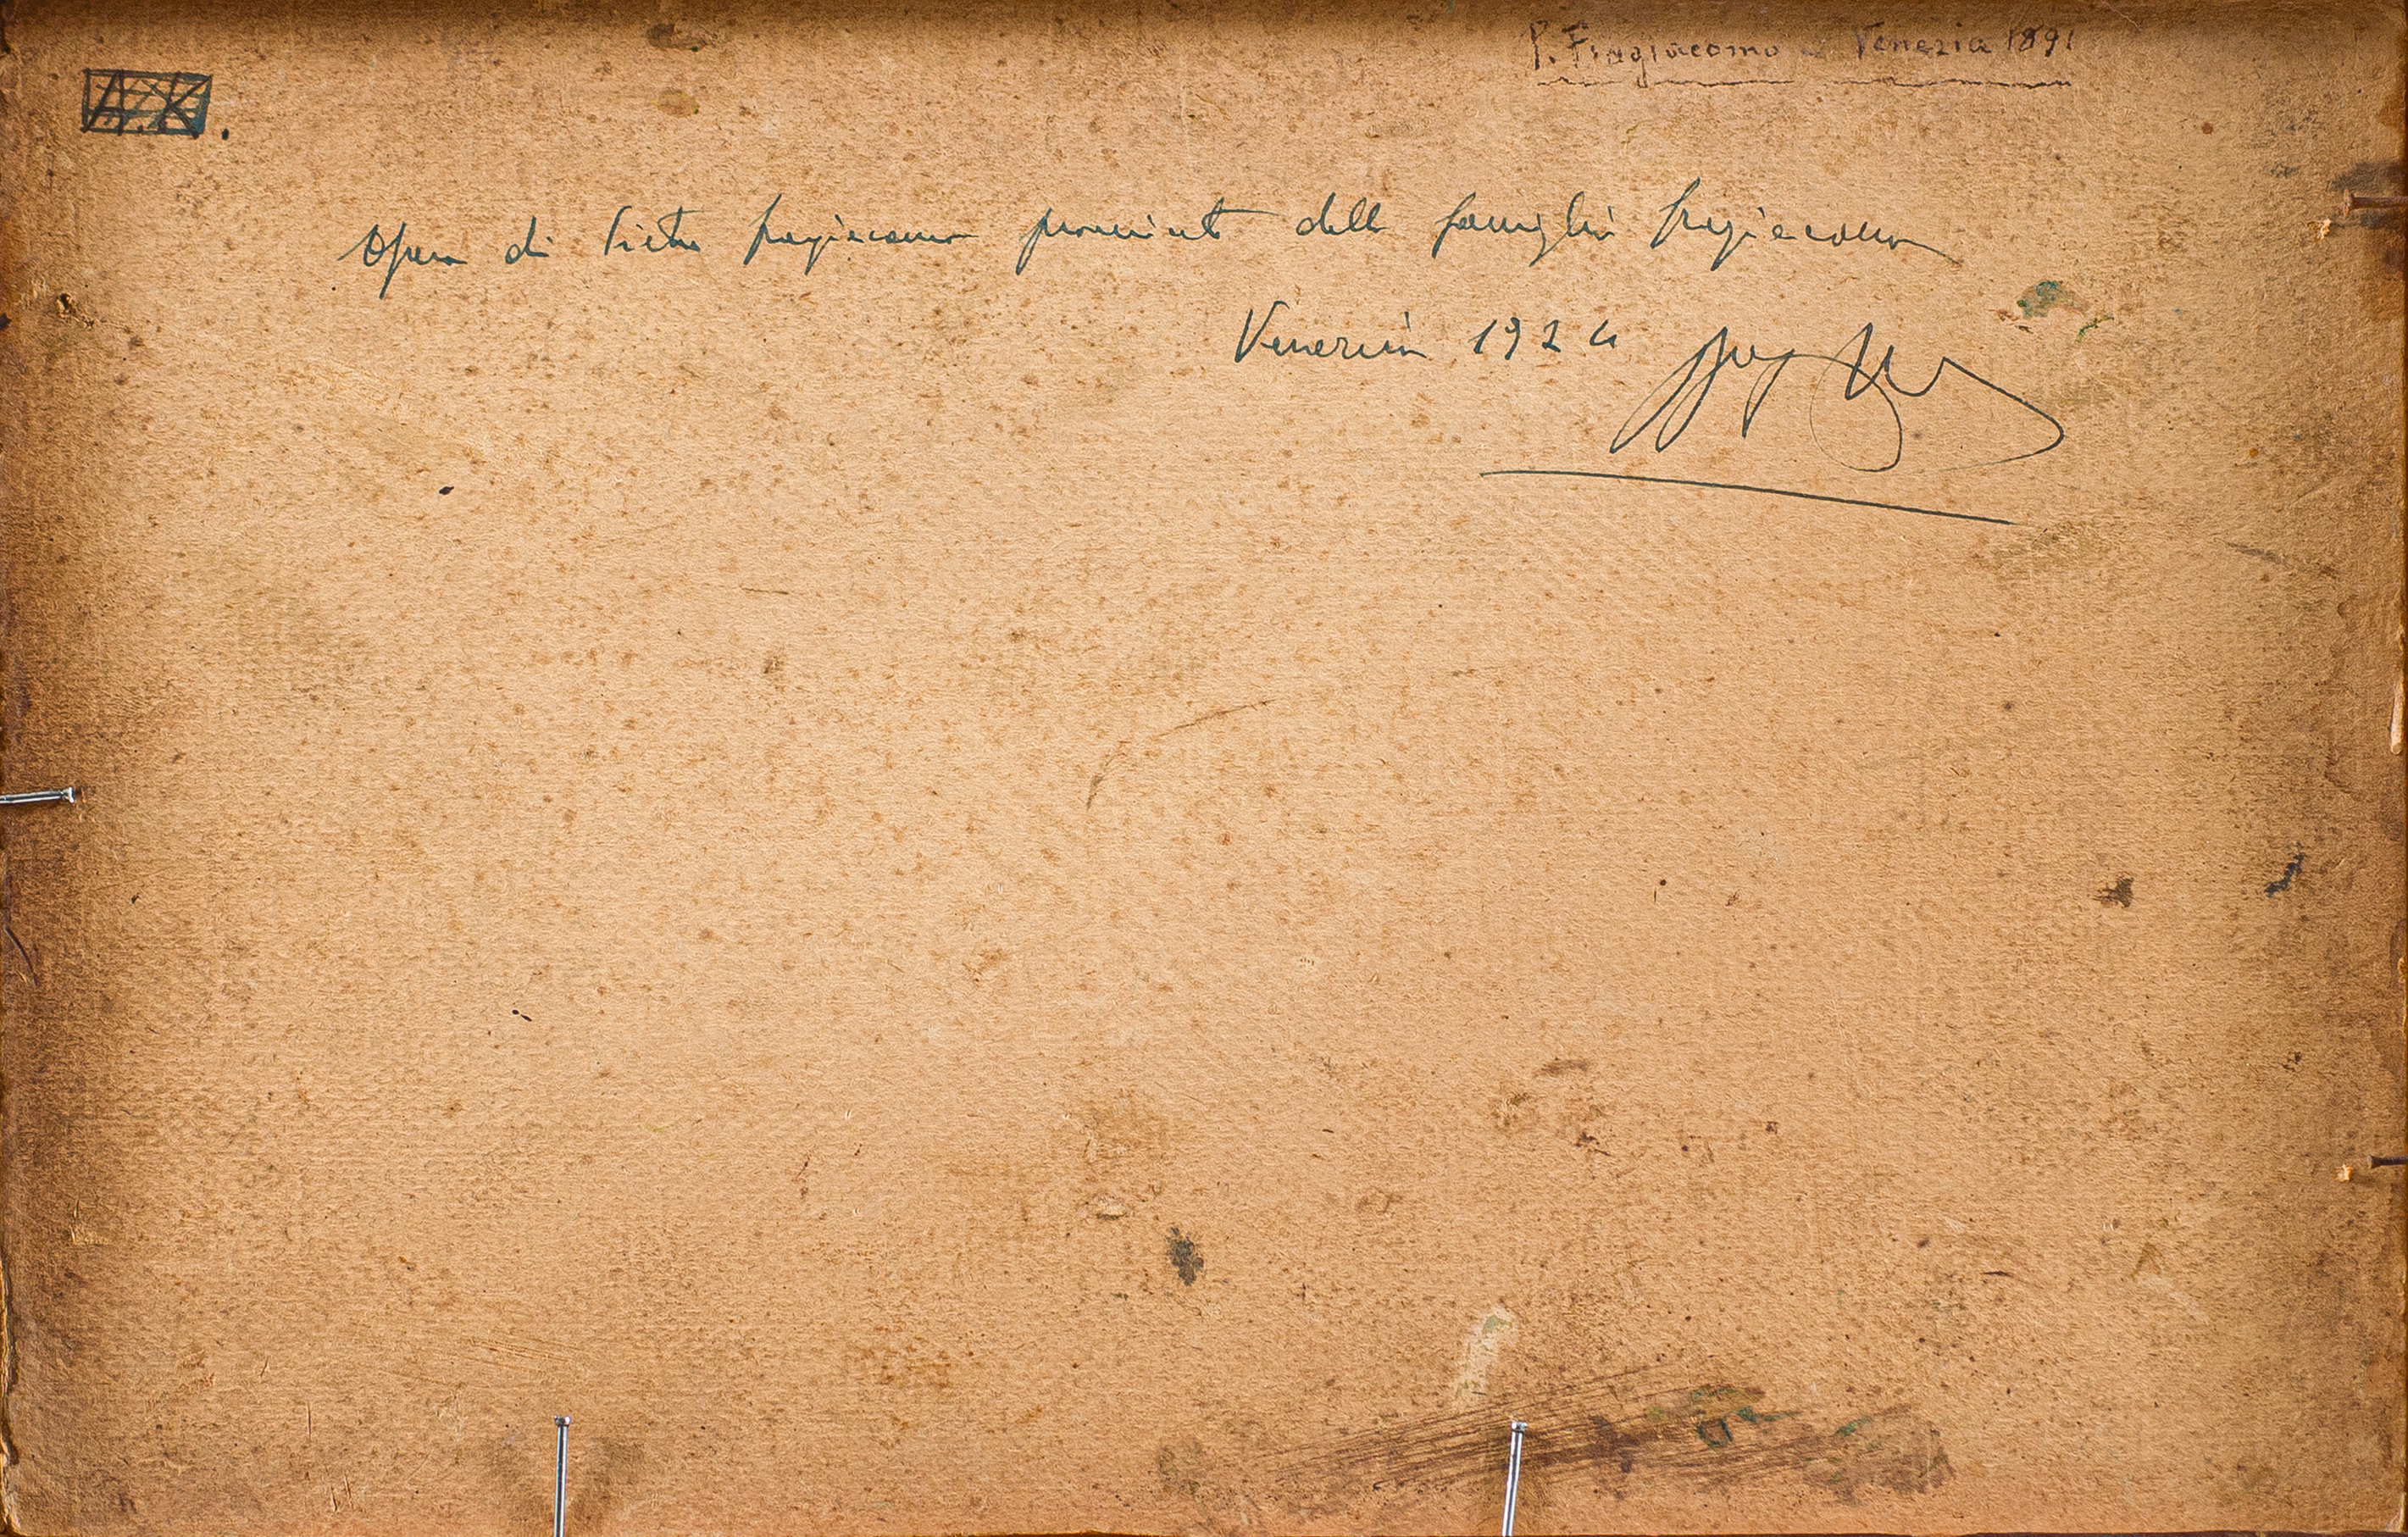 P. Fragiacomo Venezia 1891
A.K.
Opera di Pietro fragiacomo proveniente dalla famiglia fragiacomo
Venezia 1924